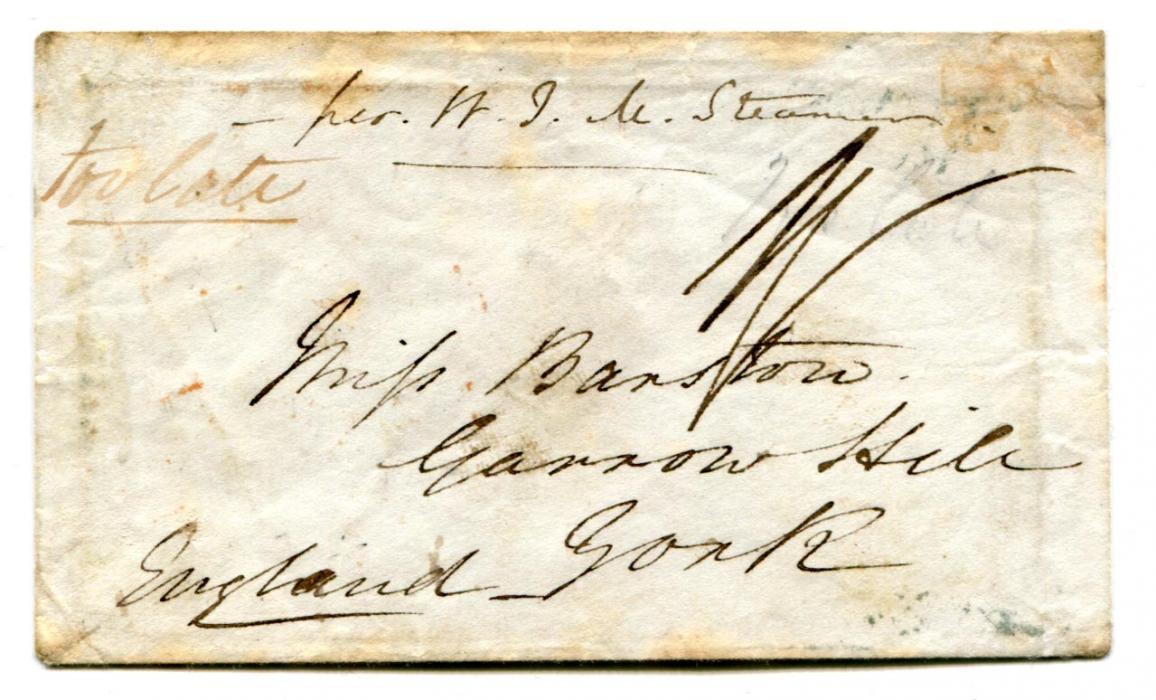 - per. W. I. M. Steamer
too late
1/
Miss Barstow.
Garrow Hill
York
England -